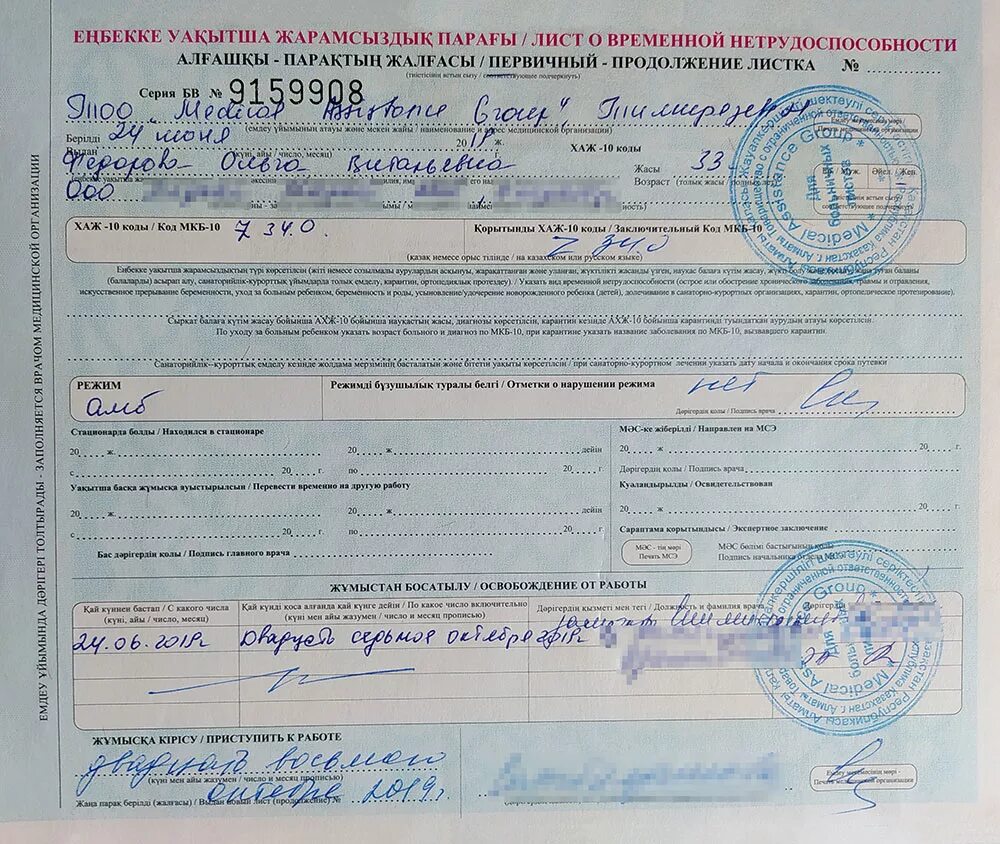 ЕҢБЕККЕ УАҚЫТША ЖАРАМСЫЗДЫҚ ПАРАҒЫ / ЛИСТ О ВРЕМЕННОЙ НЕТРУДОСПОСОБНОСТИ
АЛҒАШҚЫ - ПАРАҚТЫҢ ЖАЛҒАСЫ / ПЕРВИЧНЫЙ - ПРОДОЛЖЕНИЕ ЛИСТКА №
(тиістісінің астын сызу / соответствующее подчеркнуть)
Серия БВ № 9159908
ТОО „Medical Assistance Group",
(емдеу ұйымының атауы және мекен жайы / наименование и адрес медицинской организации)
Берілді 24 июня 2019 ж.
Выдан (күні, айы / число, месяц) ХАЖ -10 коды
Федорова Ольга Витальевна Жасы 33
Возраст (толық жасы / полных лет)
ООО
ХАЖ -10 коды / Код МКБ-10 Z 34.0. Қорытынды ХАЖ-10 коды / Заключительный Код МКБ-10
(қазақ немесе орыс тілінде / на казахском или русском языке)
Еңбекке уақытша жарамсыздықтың түрі көрсетілсін (жіті немесе созылмалы аурулардың асқынуы, жарақаттанған және уланған, жүктілікті жасанды үзген, науқас балаға күтім жасау,
(балаларды) асырап алу, санаторийлік-курорттық ұйымдарда толық емделу, карантин, ортопедиялық протездеу). / Указать вид временной нетрудоспособности (острое или обострение хронического заболевания, травмы и отравления,
искусственное прерывание беременности, уход за больным ребенком, беременность и роды, усыновление/удочерение новорожденного ребенка (детей), долечивание в санаторно-курортных организациях, карантин, ортопедическое протезирование).
Сырқат балаға күтім жасау бойынша АХЖ-10 бойынша науқастың жасы, диагнозы көрсетілсін, карантин кезінде АХЖ-10 бойынша карантинді туындатқан аурудың атауы көрсетілсін.
По уходу за больным ребенком указать возраст больного и диагноз по МКБ-10, при карантине указать название заболевания по МКБ-10, вызвавшего карантин.
Санаторийлік–курорттық емделу кезінде жолдама мерзімінің басталатын және бітетін уақыты көрсетілсін / при санаторно-курортном лечении указать дату начала и окончания срока путевки
РЕЖИМ
амб
Режимді бұзушылық туралы белгі / Отметки о нарушении режима нет
Дәрігердің қолы / Подпись врача
Стационарда болды / Находился в стационаре
20 ж. 20 ж дейін
с 20 г. по 20 г.
Уақытша басқа жұмысқа ауыстырылсын / Перевести временно на другую работу
20 ж. 20 ж дейін
с 20 г. по 20 г.
Бас дәрігердің қолы / Подпись главного врача
МӘС-ке жіберілді / Направлен на МСЭ
20 ж 20 г.
Дәрігердің қолы / Подпись врача
Куәландырылды / Освидетельствован
20 ж 20 г.
Сараптама қорытындысы / Экспертное заключение
МӘС - тің мөрі
Печать МСЭ
МӘС бөлімі бастығының қолы
Подпись начальника отдела МСЭ
ЖҰМЫСТАН БОСАТЫЛУ / ОСВОБОЖДЕНИЕ ОТ РАБОТЫ
Қай күннен бастап / С какого числа
(күні, айы / число, месяц)
Қай күнді қоса алғанда қай күнге дейін / По какое число включительно
(күні мен айы жазумен / число и месяц прописью)
Дәрігердің қызметі мен тегі / Должность и фамилия врача
24.06.2019г Двадцать седьмое октября 2019г
ЖҰМЫСҚА КІРІСУ / ПРИСТУПИТЬ К РАБОТЕ
двадцать восьмого
(күні мен айы жазумен / число и месяц прописью)
октября 2019г.
Жаңа парақ берілді (жалғасы) / Выдан новый лист (продолжение) №
Емдеу мекемесінің мөрі -
Печать медицинской организации
ЕМДЕУ ҰЙЫМЫНДА ДӘРІГЕРІ ТОЛТЫРАДЫ - ЗАПОЛНЯЕТСЯ ВРАЧОМ МЕДИЦИНСКОЙ ОРГАНИЗАЦИИ
Medical Assistance Group
Для больничных листов